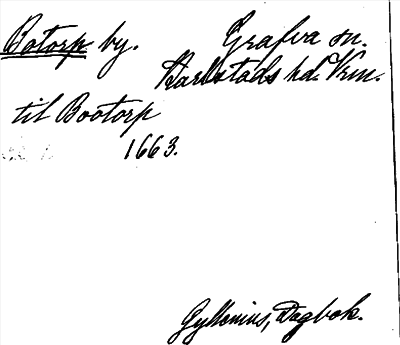 Botorp by. Grafva sn.
Karlstads hd. Vrm.
til Bootorp
1663.
Gyllenius, Dagbok.